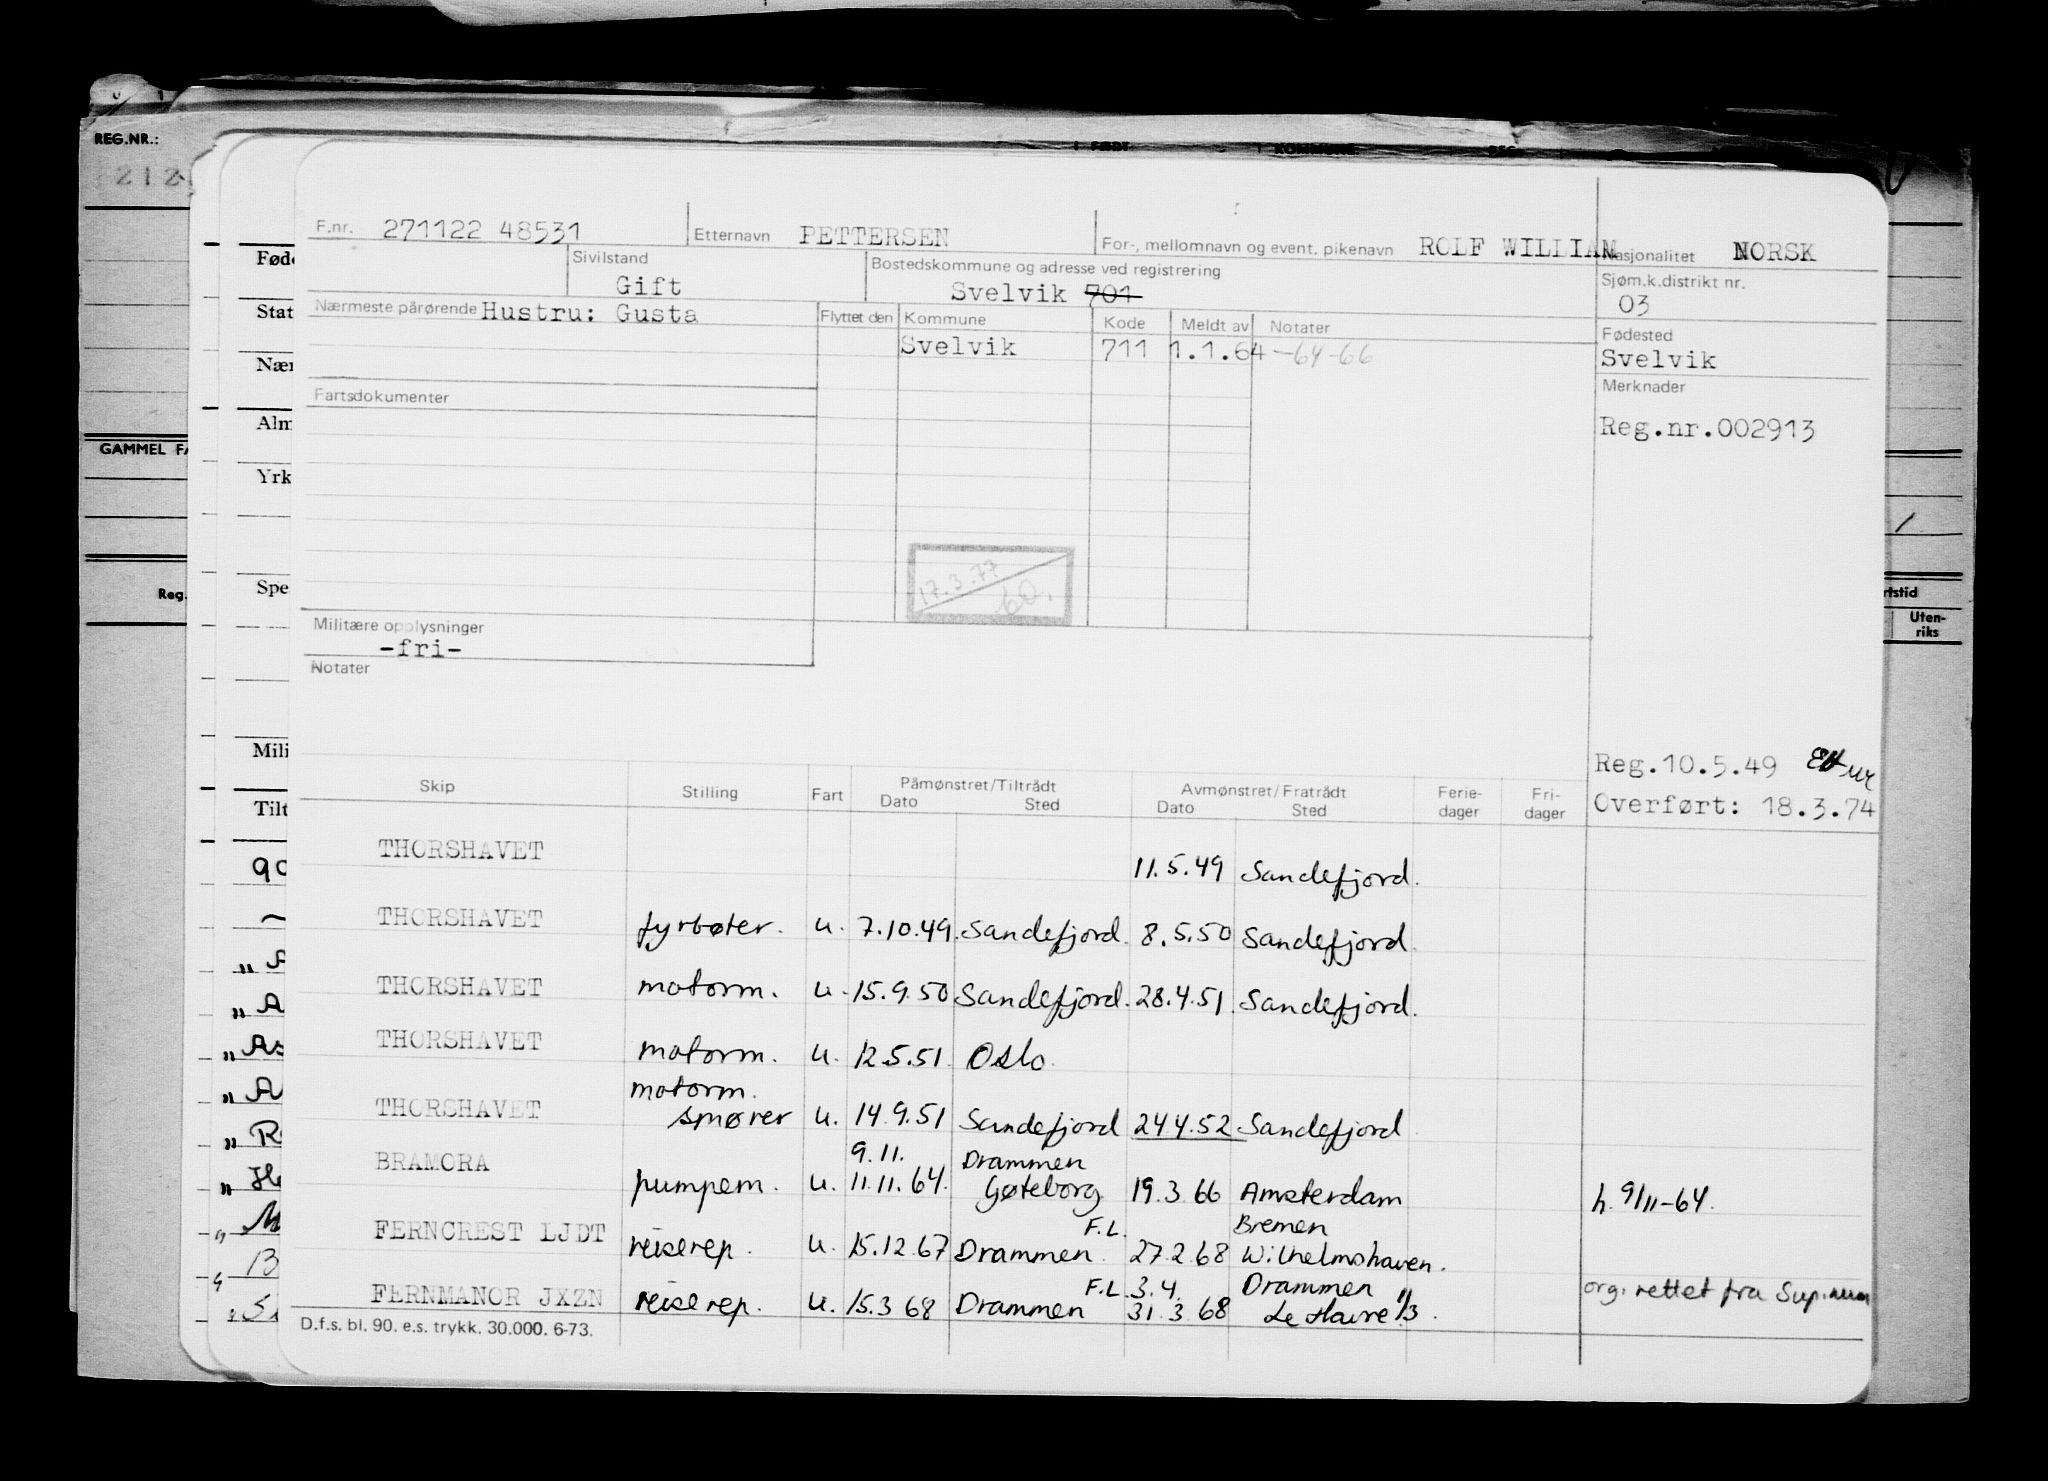 REG.NR.:
212
GAMMEL FA
Reg.
Føde
Stat
Nær
Alm
Yrk
Spe
Mili
Tilt
FØDT
KOMMUNE
F.nr. 271122 48531 Etternavn PETTERSEN For-, mellomnavn og event. pikenavn ROLF WILLIAM Nasjonalitet NORSK
Sivilstand Gift Bostedskommune og adresse ved registrering Svelvik 701 Sjøm.k.distrikt nr. 03
Nærmeste pårørende Hustru: Gusta Flyttet den Kommune Kode Meldt av Notater Fødested
Svelvik 711 1.1.64 -64-66 Svelvik
Fartsdokumenter Merknader
Reg.nr.002913
17.3.77
60.
Militære opplysninger
-fri-
Notater
Reg.10.5.49
Overført: 18.3.74
Skip Stilling Fart Påmønstret/Tiltrådt Avmønstret/Fratrådt Ferie- Fri-
Dato Sted Dato Sted dager dager
THORSHAVET 11.5.49 Sandefjord.
THORSHAVET fyrbøter. u. 7.10.49. Sandefjord. 8.5.50 Sandefjord.
THORSHAVET motorm. u. 15.9.50 Sandefjord. 28.4.51. Sandefjord.
THORSHAVET motorm. u. 12.5.51 Oslo.
motorm.
THORSHAVET smører u. 14.9.51 Sandefjord 24.4.52. Sandefjord
9.11. Drammen
BRAMORA pumpem. u. 11.11.64. Gøteborg. 19.3.66 Amsterdam h. 9/11-64.
F.L. Bremen
FERNCREST LJDT reiserep. u. 15.12.67 Drammen. 27.2.68 Wilhelmshaven.
F.L. 3.4. Drammen
FERNMANOR JXZN reiserep. u. 15.3.68 Drammen 31.3.68 Le Havre 1/3. org. rettet fra Sup.num
D.f.s. bl. 90. e.s. trykk. 30.000. 6-73.
rtstid
Uten-
riks